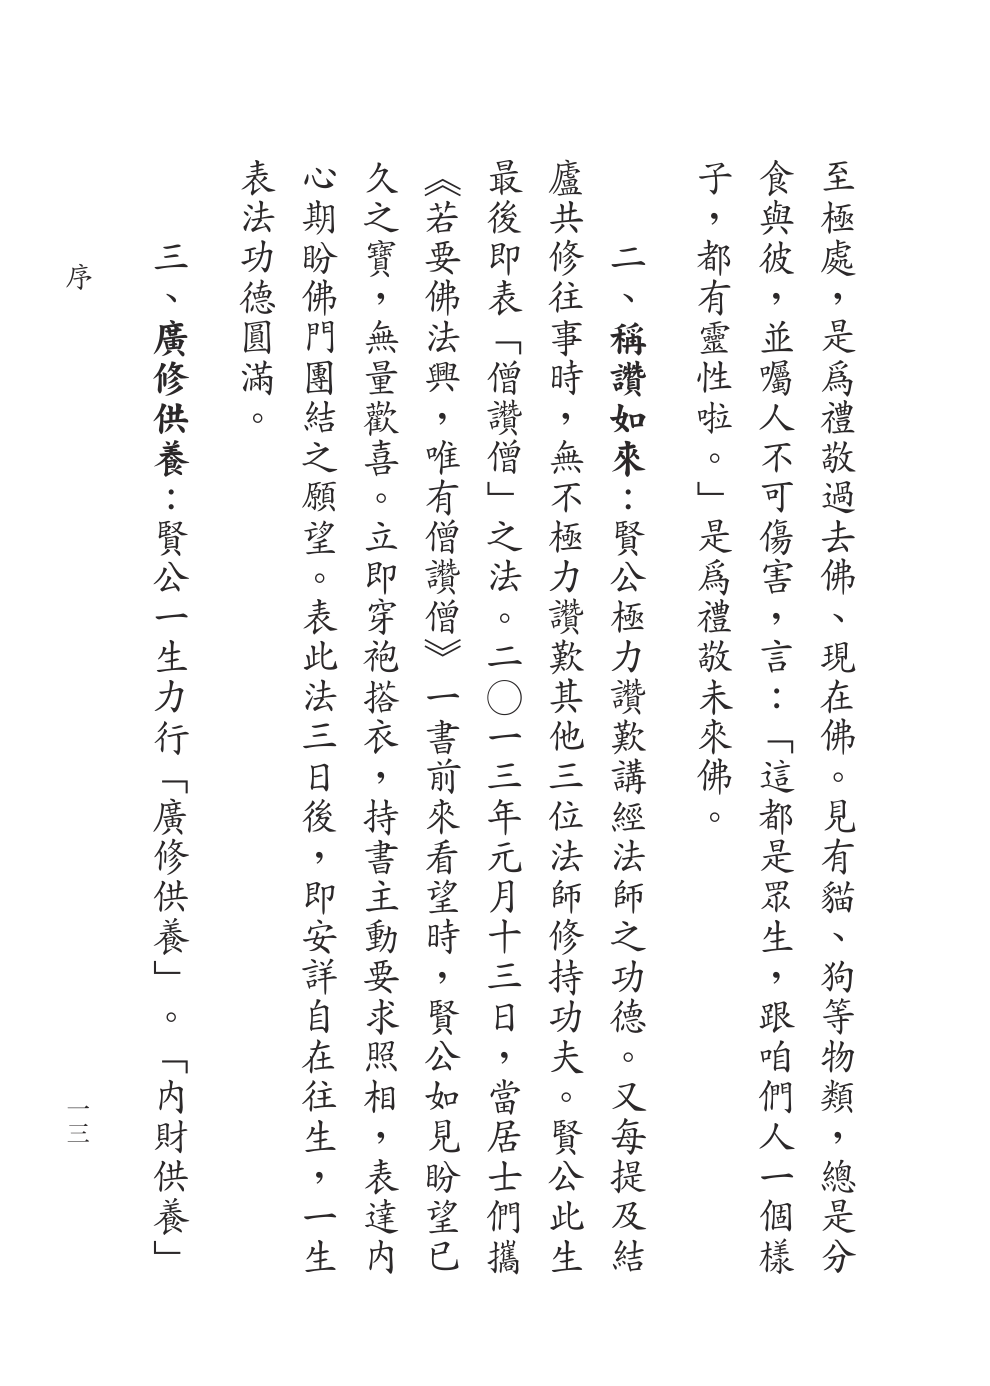 至極處，是爲禮敬過去佛、現在佛。見有貓、狗等物類，總是分
食與彼，並囑人不可傷害，言：「這都是眾生，跟咱們人一個樣
子，都有靈性啦。」是爲禮敬未來佛。
二、稱讚如來：賢公極力讚歎講經法師之功德。又每提及結
廬共修往事時，無不極力讚歎其他三位法師修持功夫。賢公此生
最後即表「僧讚僧」之法。二〇一三年元月十三日，當居士們攜
《若要佛法興，唯有僧讚僧》一書前來看望時，賢公如見盼望已
久之寶，無量歡喜。立即穿袍搭衣，持書主動要求照相，表達内
心期盼佛門團結之願望。表此法三日後，即安詳自在往生，一生
表法功德圓滿。
三、廣修供養：賢公一生力行「廣修供養」。「内財供養」
序
一三